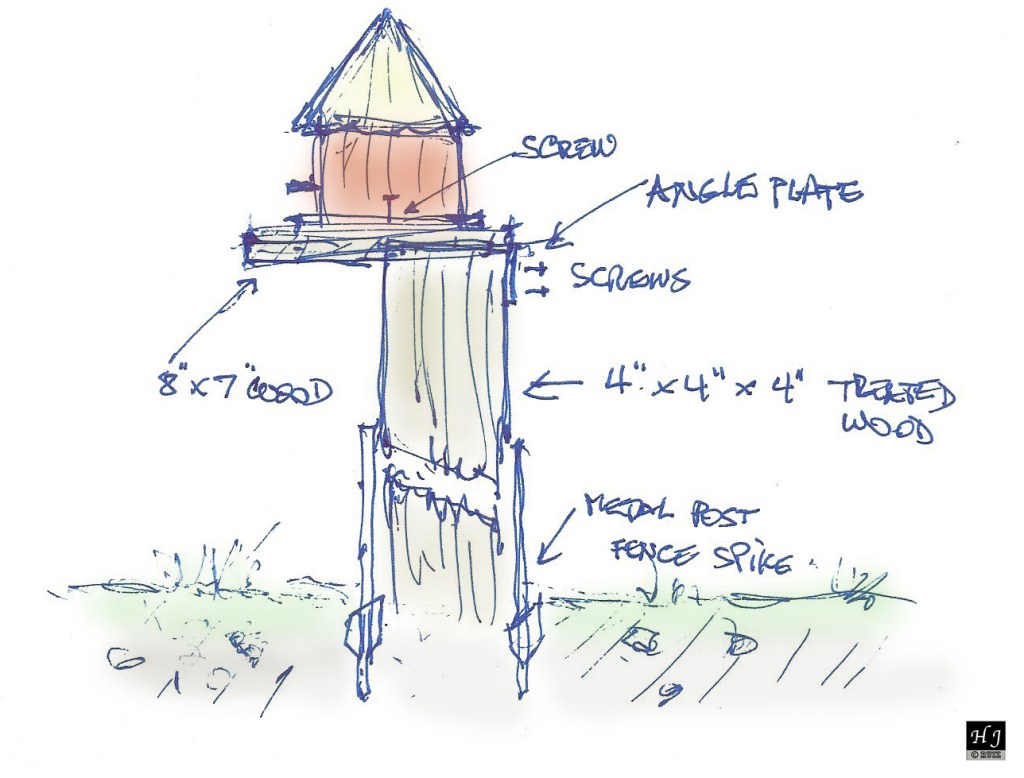 SCREW
ANGLE PLATE
SCREWS
8" x 7" WOOD
4" x 4" x 4" TREATED
WOOD
METAL POST
FENCE SPIKE
HJ
© RUIZ